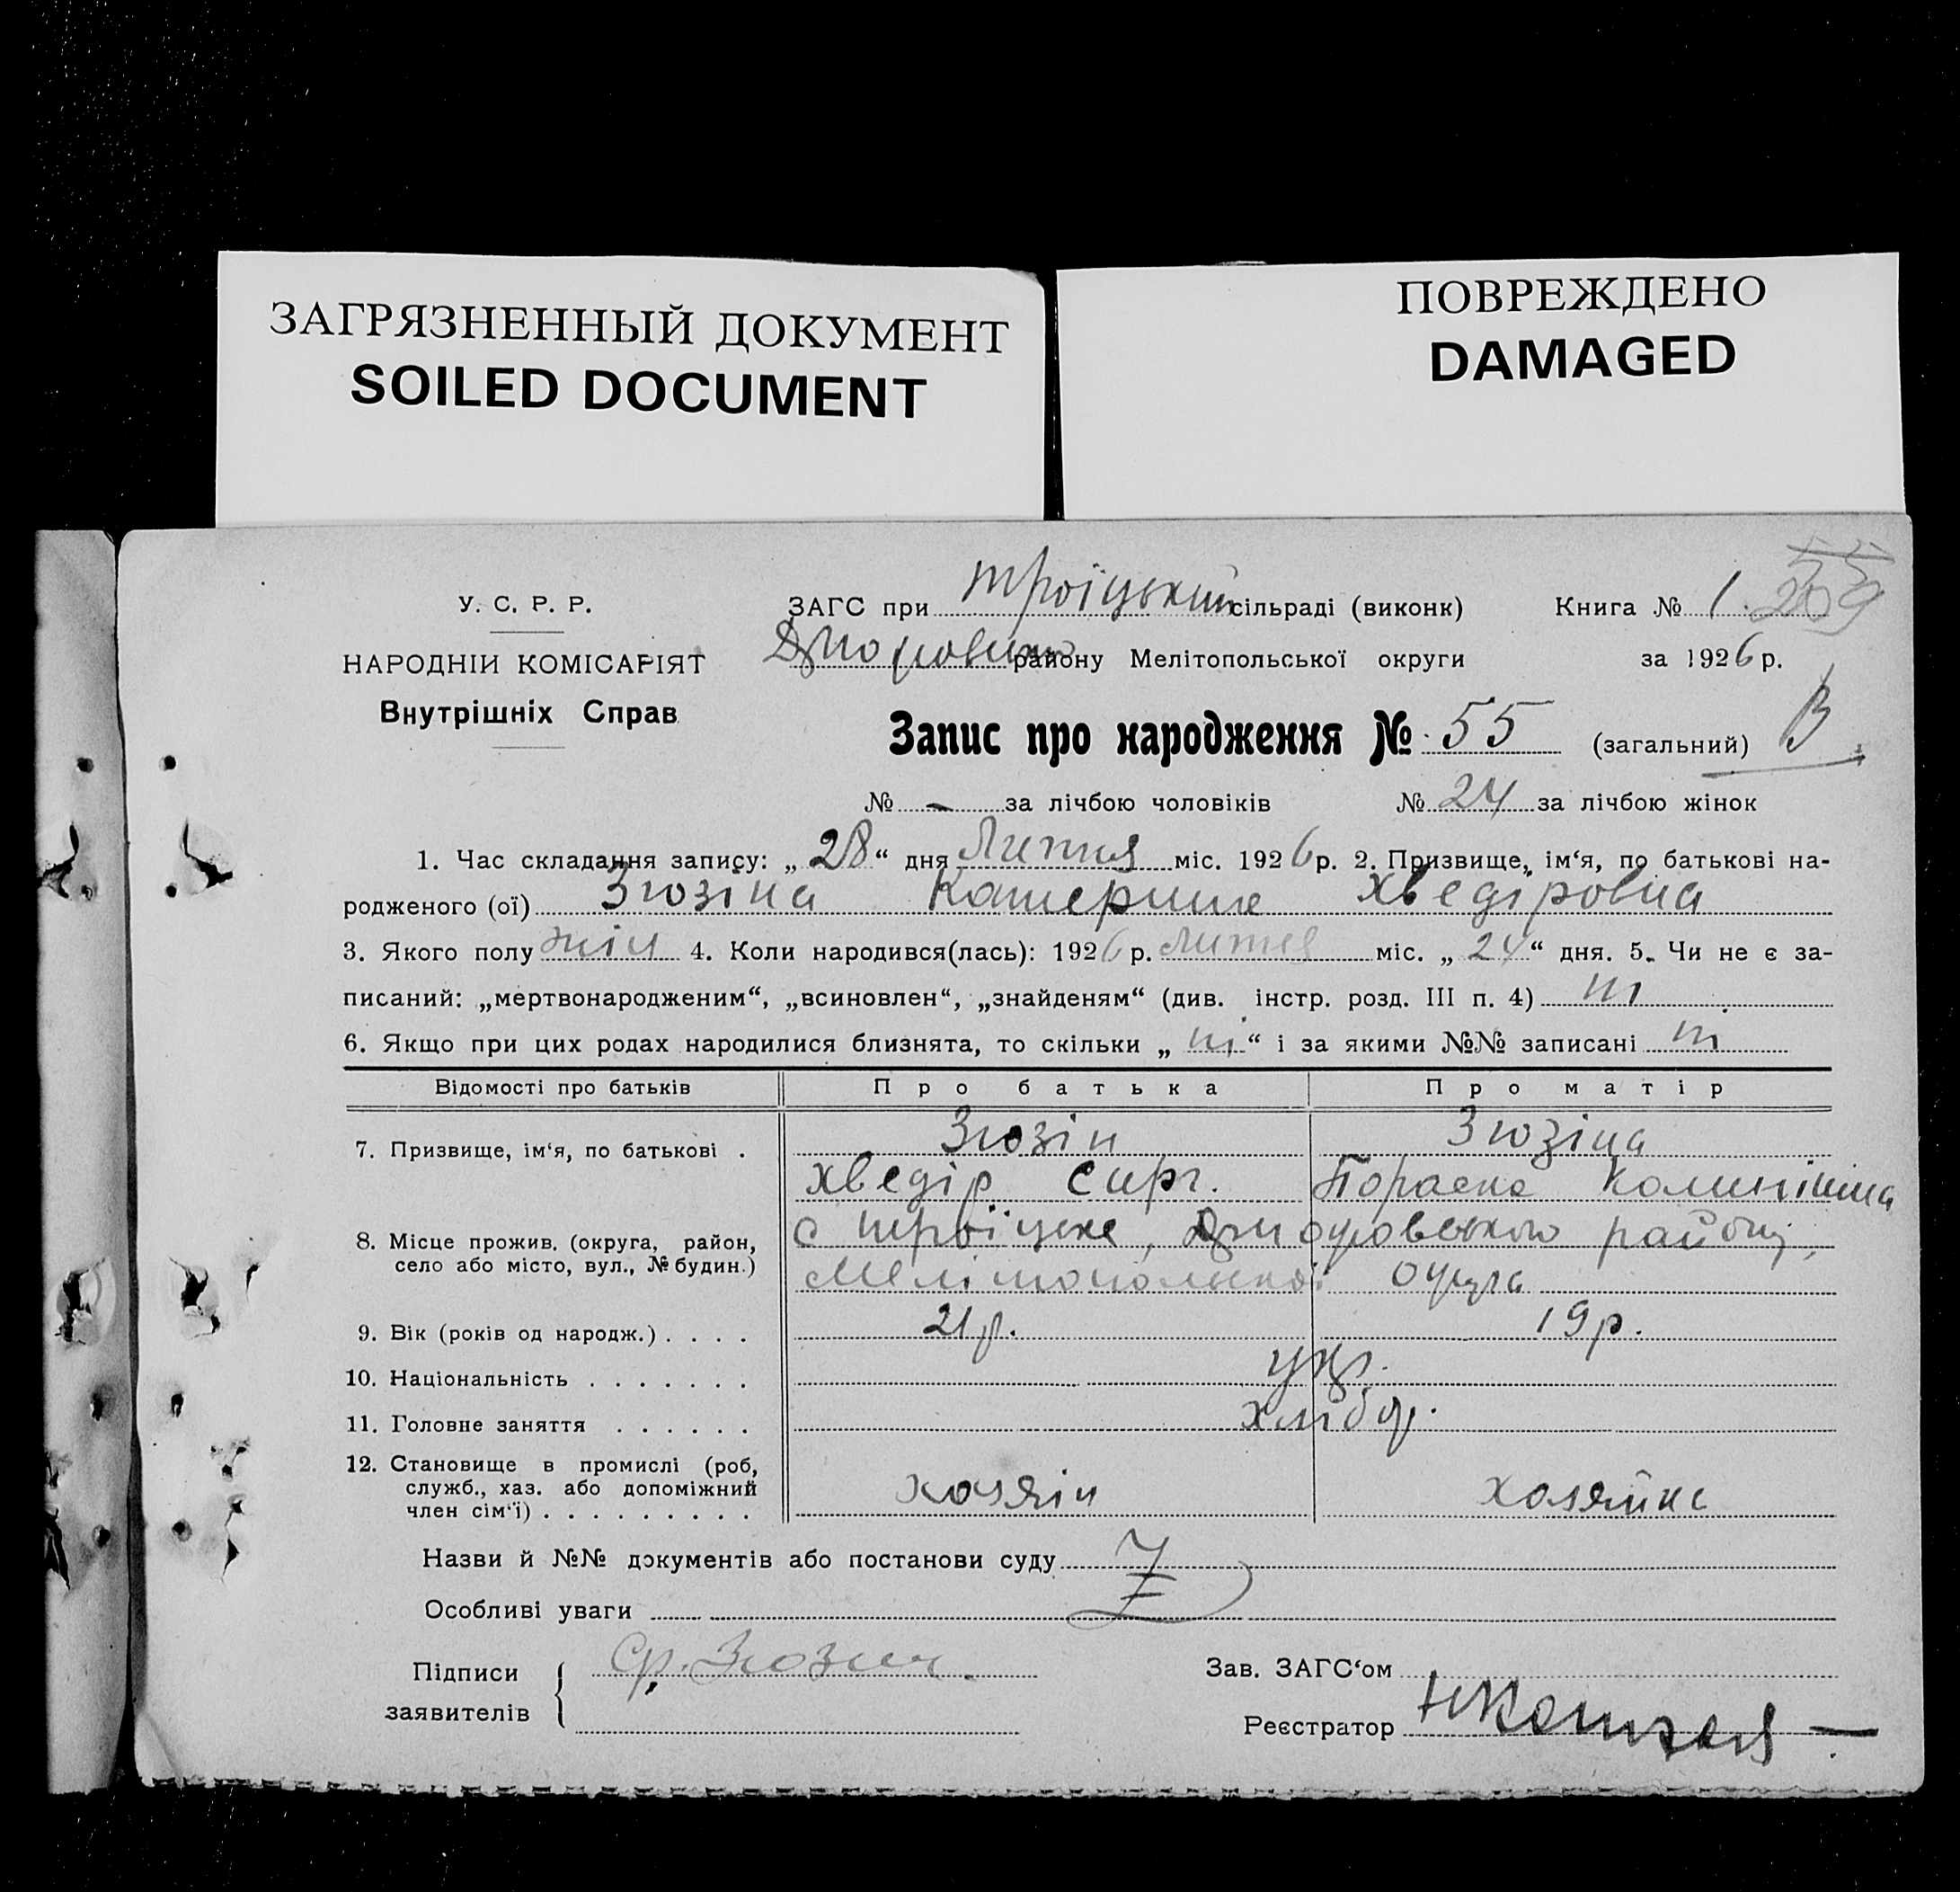 ЗАГРЯЗНЕННЫЙ ДОКУМЕНТ
SOILED DOCUMENT
ПОВРЕЖДЕНО
DAMAGED
У. С. Р. Р.
НАРОДНІИ КОМІСАРІЯТ
Внутрішніх Справ
ЗАГС при Троіцький сільраді (виконк) Книга № 1. 269
району Мелітопольської округи за 1926 р.
Запис про народження № 55 (загальний) В
№ - за лічбою чоловіків № 24 за лічбою жінок
1. Час складання запису: „ 28 “ дня Лютня міс. 1926 р. 2. Призвище, ім‘я, по батькові на-
родженого (ої) Зюзіна Катерина Хведіровна
3. Якого полу жін 4. Коли народився(лась): 1926 р. Лютня міс. „ 24 “ дня. 5. Чи не є за-
писаний: „мертвонародженим“, „всиновлен“, „знайденям“ (див. інстр. розд. III п. 4) ні
6. Якщо при цих родах народилися близнята, то скільки „ ні “ і за якими №№ записані ні
Відомості про батьків Про батька Про матір
7. Призвище, ім‘я, по батькові . Зюзін Зюзіна
Хведір Сирг. Пораска
8. Місце прожив. (округа, район, село або місто, вул., № будин.) с Троіцке, району,
Мелітопольської округа
9. Вік (років од народж.) . . . . 21 р. 19 р.
10. Національність . . . . . . . укр.
11. Головне заняття . . . . . . хлібор.
12. Становище в промислі (роб, служб., хаз. або допоміжний член сім‘ї) . . . . . . . . . хозяін хозяйка
Назви й №№ документів або постанови суду
Особливі уваги
Підписи заявителів { Ф. Зюзин.
Зав. ЗАГС‘ом
Реєстратор